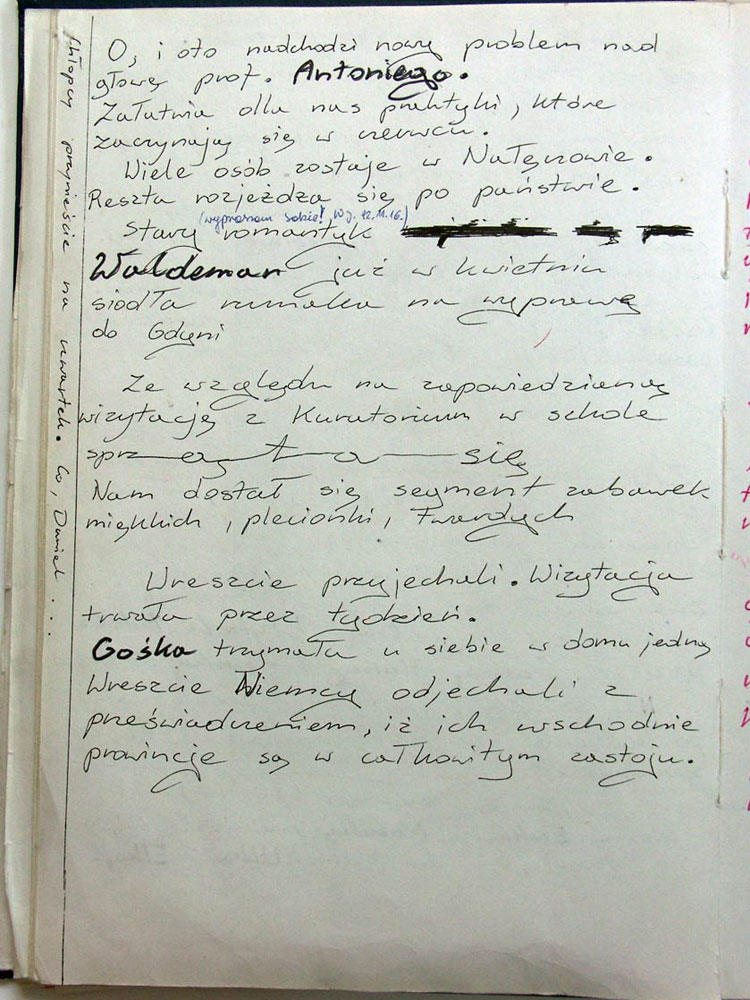 O, i oto nadchodzi nowy problem nad
głową prof. Antoniego.
Załatwia dla nas praktyki, które
zaczynają się w czerwcu.
Wiele osób zostaje w Nałęczowie.
Reszta rozjeżdża się po państwie.
(wypraszam sobie! WJ. 12.11.16.)
Stary romantyk
Waldemar już w kwietniu
siodła rumaka na wyprawę
do Gdyni
Ze względu na zapowiedzianą
wizytację z Kuratorium w szkole
sprząta się
Nam dostał się segment zabawek
miękkich, plecionki, twardych
Wreszcie przyjechali. Wizytacja
trwała przez tydzień.
Gośka trzymała u siebie w domu jedną
Wreszcie Niemcy odjechali z
przeświadczeniem, iż ich wschodnie
prowincje są w całkowitym zastoju.
chłopcy przynieście na czwartek. Co, Daniel ...